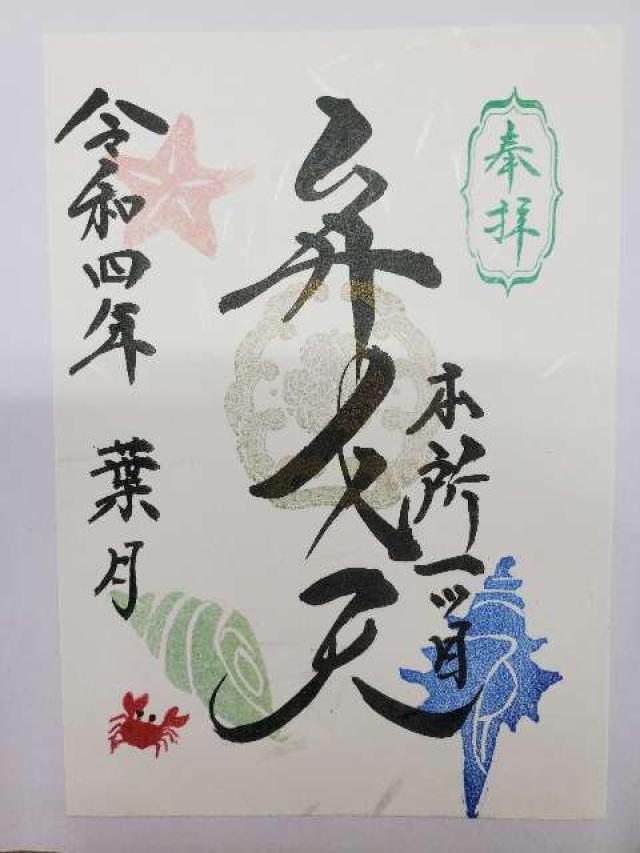 奉拝
本所一ツ目
弁財天
令和四年 葉月